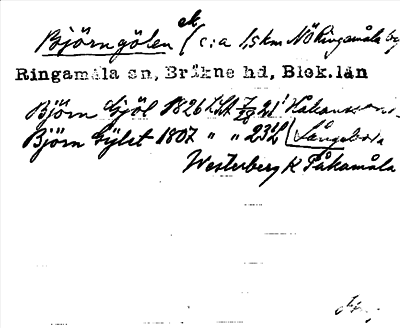 ek
Björngölen (c:a 1,5 km NÖ Ringamåla by
Ringamåla sn, Bräkne hd, Blek.län
Björn Gjöl 1826 Lskt
Björn Gylet 1807 " " 23 Långeboda
Westerberg K Påkamåla